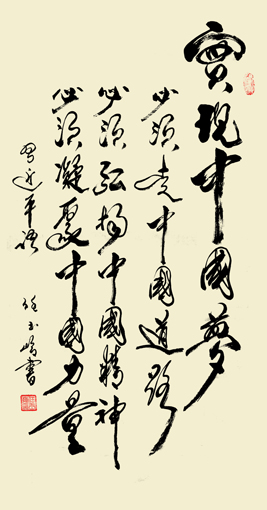 實現中國夢
必須走中國道路
必須弘揚中國精神
必須凝聚中國力量
習近平語
任玉嶺書